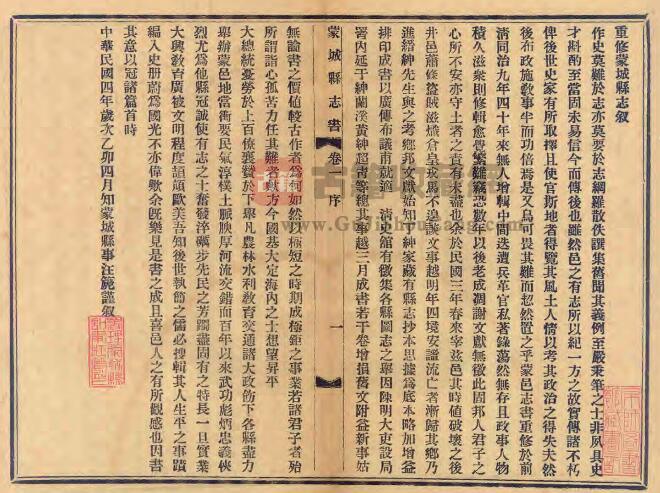 重修蒙城縣志叙
作史莫難於志亦莫要於志綱羅散佚譔集舊聞其義例至嚴秉筆之士非夙具史
才斟酌至當固未易信今而傳後也雖然邑之有志所以紀一方之故實傳諸不朽
俾後世史家有所取擇且使官斯地者得覽其風土人情以考其政治之得失夫然
後布政施敎事半而功倍焉是又烏可畏其難而恝然置之乎蒙邑志書重修於前
清同治九年四十年來無人增輯中間迭遭兵革官私著錄蕩然無存且政事人物
積久滋衆則修輯愈覺繁難竊恐數年以後老成凋謝文獻無徵此固邦人君子之
心所不安亦守土者之責有未盡也余於民國三年春來宰茲邑其時値破壞之後
井邑蕭條盜賊滋熾倉皇戎馬不遑議文事越明年四境安謐流亡者漸歸其鄉乃
進縉紳先生與之考鄉邦文獻始知 紳家藏有縣志抄本思據爲底本略加增益
排印成書以廣傳布議甫就適 淸史館有徵集各縣圖志之舉因陳明大吏設局
署內延于紳蘭漢黃紳超靑等總其事越三月成書若干卷增損舊文附益新事姑
蒙城縣志書 卷一 序 一
無論書之價値較古作者爲何如然以極短之時期成極鉅之事業若諸君子者殆
所謂詣心孤苦力任其難者歟方今國基大定海內之士想望昇平
大總統憂勞於上百僚襄贊於下舉凡農林水利敎育交通諸大政飭下各縣盡力
舉辦蒙邑地當衝要民氣淳樸土脈腴厚河流交錯而百年以來武功彪炳忠義俠
烈尤爲他縣冠誠使有志之士奮發淬礪步先民之芳躅盡固有之特長一旦實業
大興敎育廣被文明程度頡頏歐美吾知後世執簡之儒必搜輯其人生平之事蹟
編入史册蔚爲國光不亦偉歟余旣樂見是書之成且喜邑人之有所觀感也因書
其意以冠諸篇首時
中華民國四年歲次乙卯四月知蒙城縣事汪篪謹叙